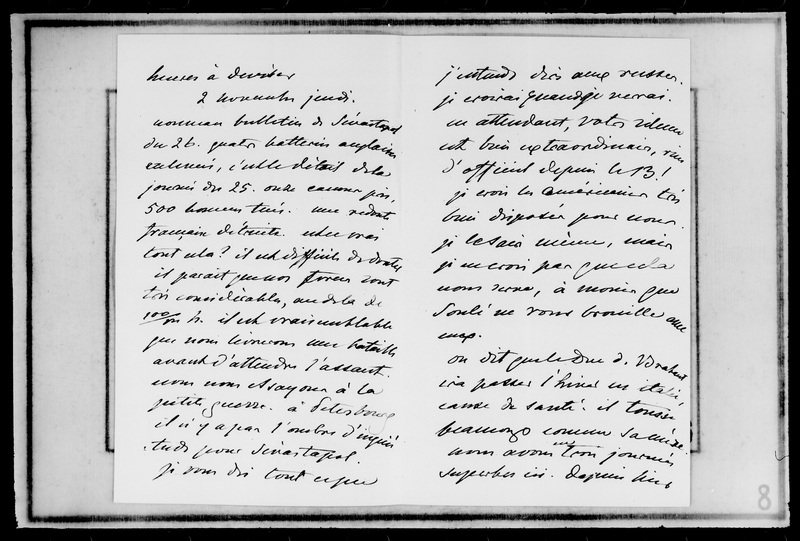 heures à deviser
2 novembre jeudi.
nouveau bulletin de Sévastopol
du 26. quatre batteries anglaises
enlevées, c'est le détail de la
journée du 25. onze canons pris,
500 hommes tués. une redoute
française détruite. est ce vrai
tout cela? il est difficile de douter
il parait que nos forces sont
très considérables, au delà de
100/m h. il est vraisemblable
que nous livrerons une bataille
avant d'attendre l'assaut.
nous nous essayons à la
petite guerre. à Petersbourg
il n'y a pas l'ombre d'inquié
tude pour Sévastopol.
je vous dis tout ce que
j'entends dire aux russes.
je croirai quand je verrai.
en attendant, votre silence
est bien extraordinaire, rien
d'officiel depuis le 13!
je crois les américains très
bien disposés pour nous.
je le sais même, mais
je ne crois pas que cela
nous serve, à moins que
Soulé ne vous brouille avec
eux.
on dit que le Duc d. Brabant
ira passer l'hiver en italie,
cause de santé. il tousse
beaucoup comme sa mère.
nous avons eu trois journées
superbes ici. Depuis hier
8